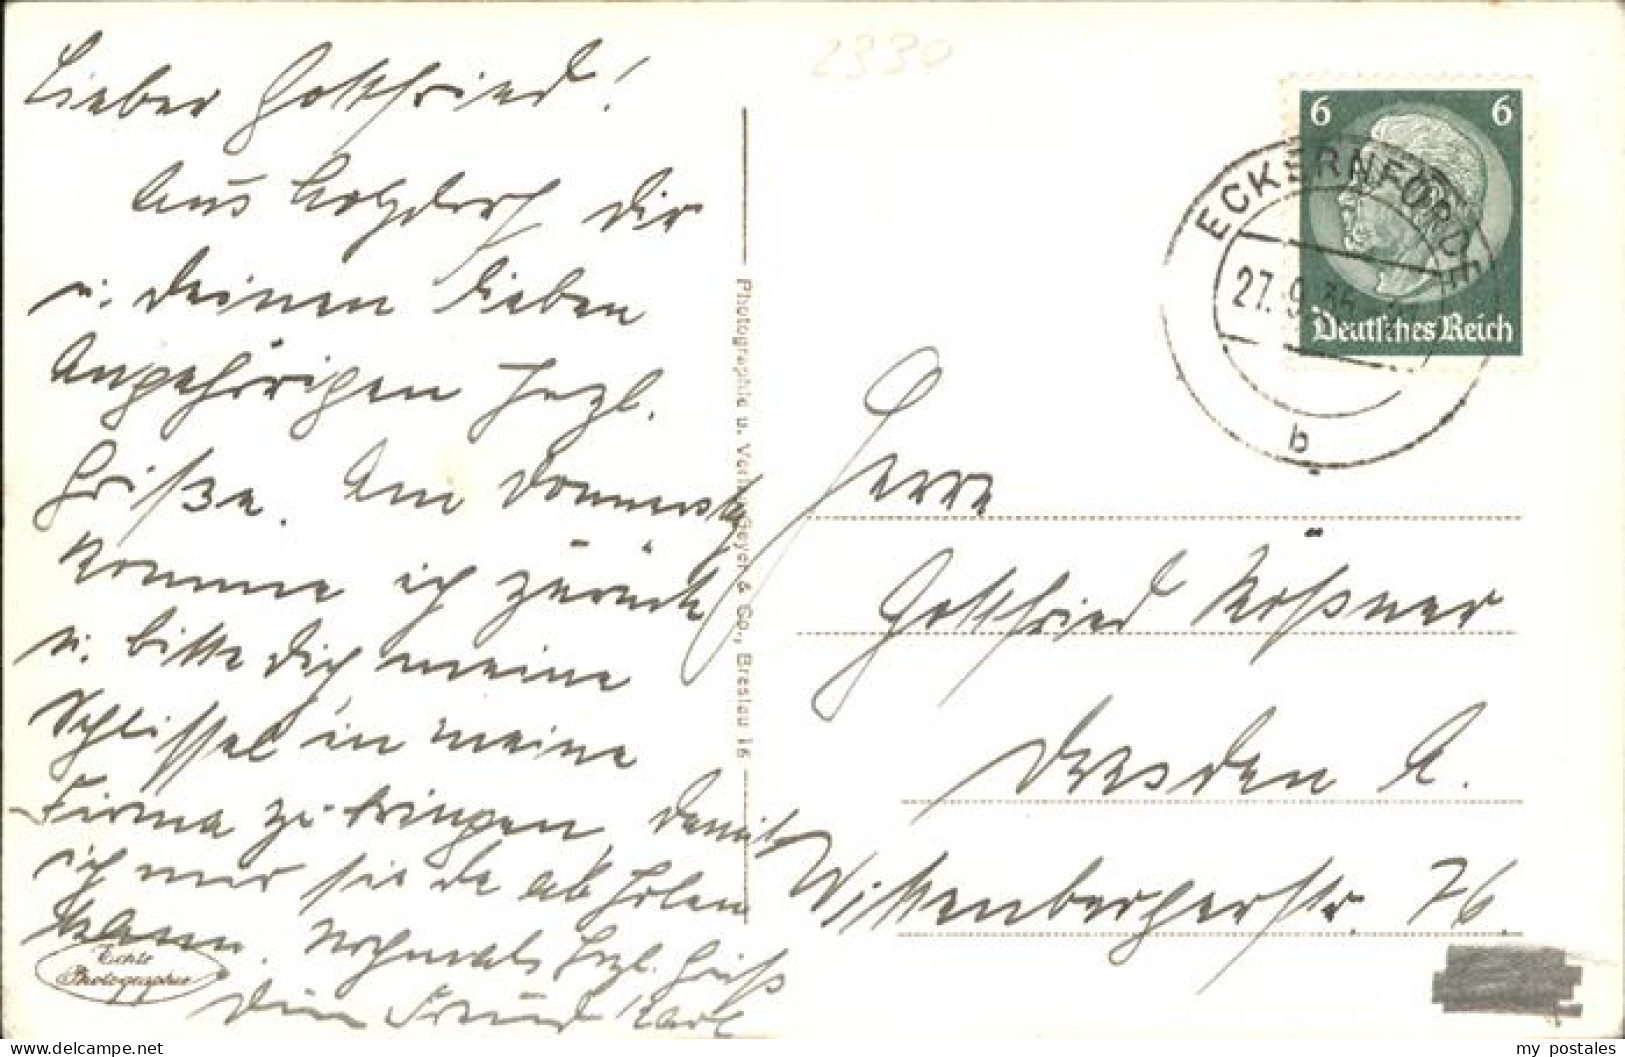 2330
Lieber Gottfried!
Aus Holzdorf Dir
u. Deinen Lieben
Angehörigen herzl.
Grüße. Am Donnerstg
komme ich zurück
u. bitte Dich meine
Schlüssel in meine
Firma zu bringen, damit
ich mir sie da abholen
kann. Nochmals herzl. Gruß
Dein Freund Karl
Echte
Photographie
Photographie u. Verlag Geyer & Co., Breslau 16
6 6
Deutsches Reich
ECKERNFÖRDE
27.9.
b
Herrn
Gottfried Rößner
Dresden A.
Wittenbergerstr. 76.
my postales